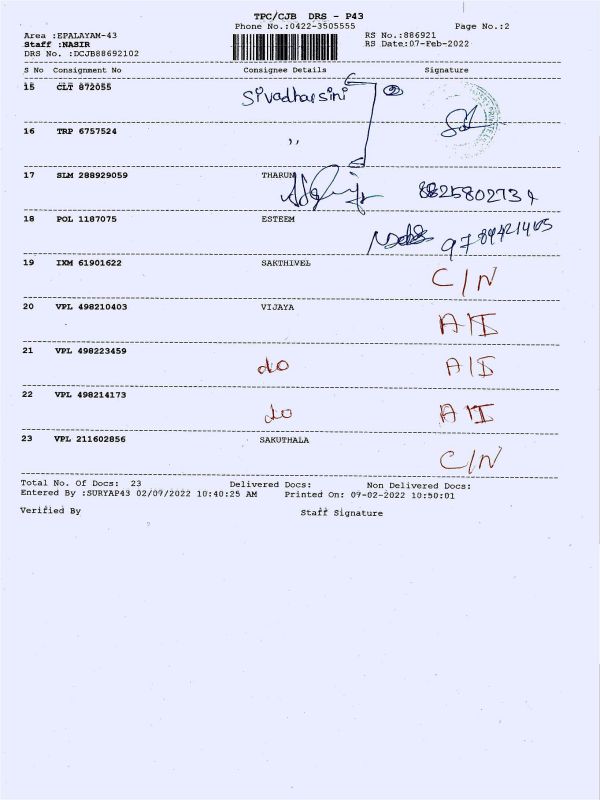 TPC/CJB DRS - P43
Phone No.:0422-3505555 Page No.:2
Area :EPALAYAM-43 RS No.:886921
Staff :NASIR RS Date:07-Feb-2022
DRS No. :DCJB88692102
S No Consignment No Consignee Details Signature
15 CLT 872055 Sivadharsini 2
16 TRP 6757524 ,,
17 SLM 288929059 THARUN
18 POL 1187075 ESTEEM
19 IXM 61901622 SAKTHIVEL C/N
20 VPL 498210403 VIJAYA
21 VPL 498223459 do
22 VPL 498214173 do
23 VPL 211602856 SAKUTHALA C/N
Total No. Of Docs: 23 Delivered Docs: Non Delivered Docs:
Entered By :SURYAP43 02/07/2022 10:40:25 AM Printed On: 07-02-2022 10:50:01
Verified By Staff Signature